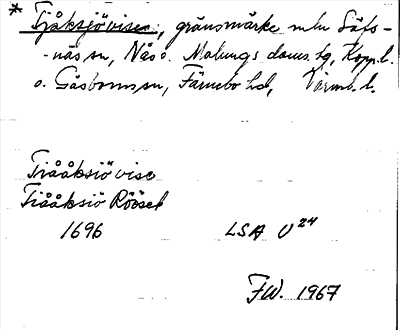 * Tjåksjövisen, gränsmärke mln Säfs-
-näs sn, Nås o. Malungs doms. tg, Kopp. l.
o. Gåsborns sn, Färnebo hd, Värml. l.
Tiååksiö vise
Tiååksiö Röösel
1696 LSA U 24
FW. 1967